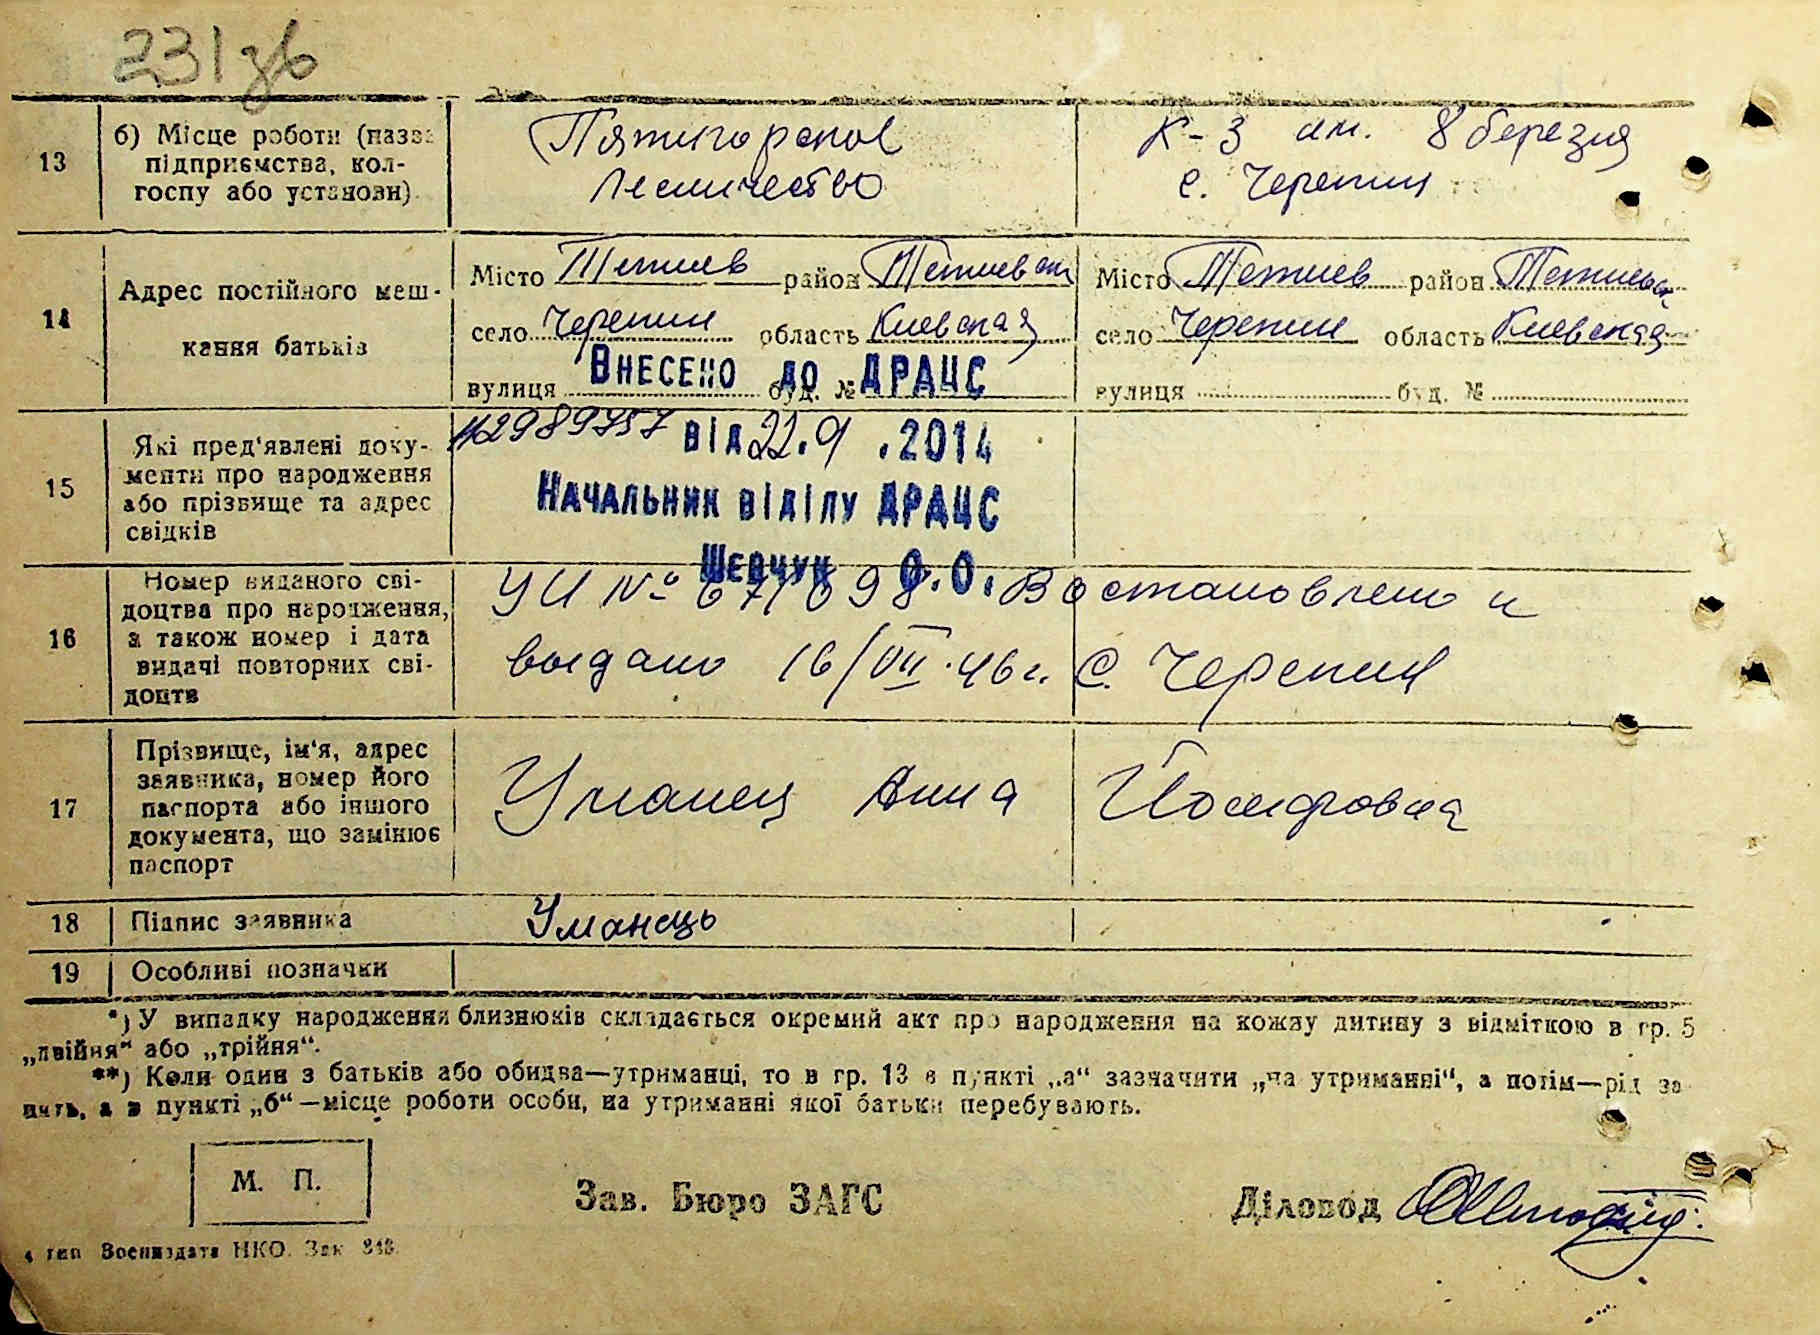 231 зв
13
б) Місце роботи (назва
підприємства, кол-
госпу або установи)
Пятигорское
Лесничество
К-з им. 8 березня
с. Черепин
14
Адрес постійного меш-
кання батьків
Місто Тетиев район Тетиевск
село Черепин область Киевская
вулиця буд. №
Місто Тетиев район Тетиевск
село Черепин область Киевская
вулиця буд. №
Внесено до ДРАЦС
від 22.9.2014
Начальник відділу ДРАЦС
Шевчук О.О.
15
Які пред'явлені доку-
менти про народження
або прізвище та адрес
свідків
16
Номер виданого сві-
доцтва про народження,
а також номер і дата
видачі повторних сві-
доцтв
УИ № Востановлено и
выдано 16/VII.46г. С. Черепин
17
Прізвище, ім'я, адрес
заявника, номер його
паспорта або іншого
документа, що замінює
паспорт
Уманец Анна Йосифовна
18
Підпис заявника
Уманець
19
Особливі позначки
*) У випадку народження близнюків складається окремий акт про народження на кожну дитину з відміткою в гр. 5
„двійня“ або „трійня“.
**) Коли один з батьків або обидва—утриманці, то в гр. 13 в пункті „а“ зазначити „на утриманні“, а потім—рід за
нять, а в пункті „б“—місце роботи особи, на утриманні якої батьки перебувають.
М. П.
Зав. Бюро ЗАГС
Діловод
4 тип Воениздата НКО. Зак